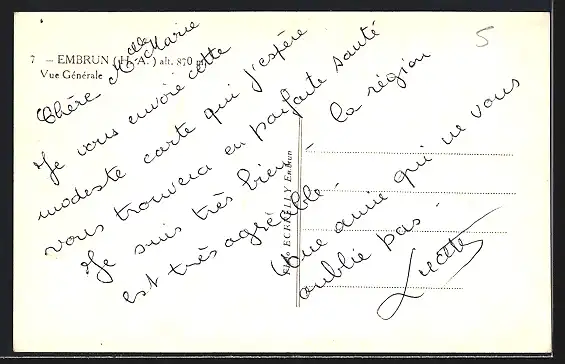 7 — EMBRUN (H.-A.) alt. 870 m
Vue Générale
5
Chère Melle Marie
Je vous envoie cette
modeste carte qui j'espère
vous trouvera en parfaite santé
Je suis très bien – la région
est très agréable –
Une amie qui ne vous
oublie pas.
Lucette
ECKERLLY Embrun